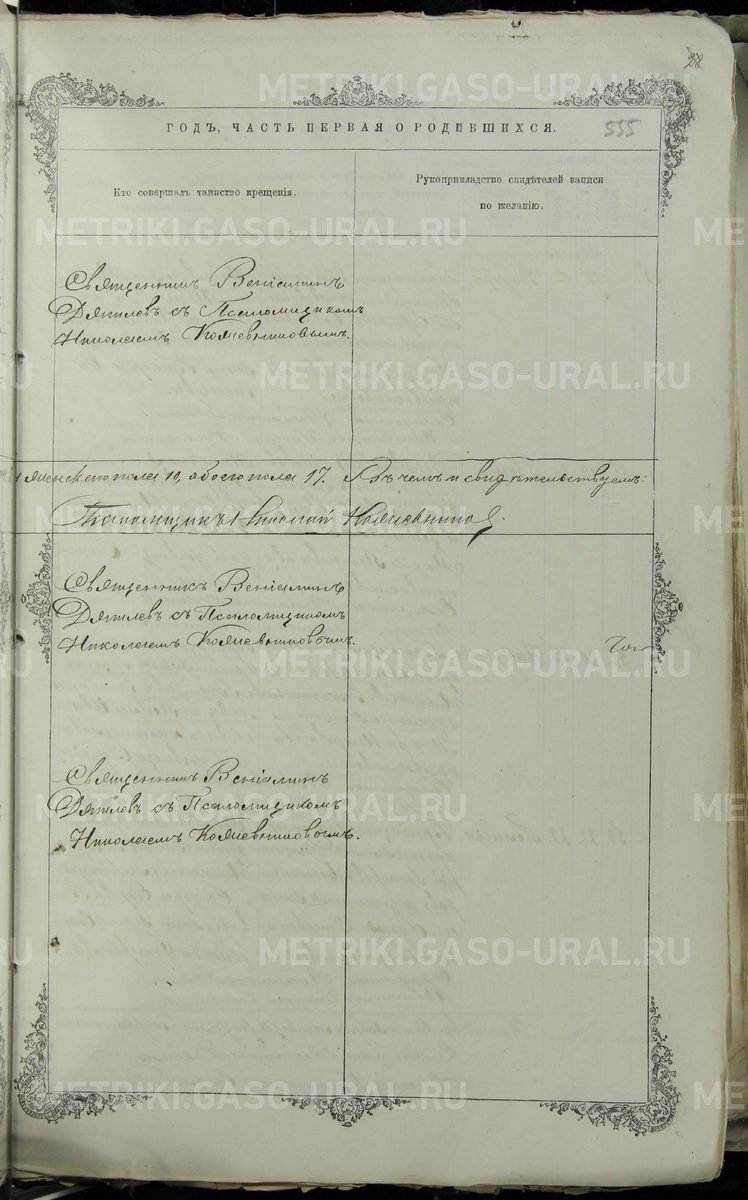 28
ГОДЪ, ЧАСТЬ ПЕРВАЯ О РОДИВШИХСЯ.
555
Кто совершалъ таинство крещенія.
Рукоприкладство свидѣтелей записи
по желанію.
Священникъ Веніаминъ
Дягилевъ съ Псаломщикомъ
Николаемъ Кожевниковымъ.
женскаго пола 10, обоего пола 17. Въ чемъ и свидѣтельствуемъ:
Псаломщикъ Николай Кожевниковъ.
Священникъ Веніаминъ
Дягилевъ съ Псаломщикомъ
Николаемъ Кожевниковымъ.
Священникъ Веніаминъ
Дягилевъ съ Псаломщикомъ
Николаемъ Кожевниковымъ.
METRIKI.GASO-URAL.RU